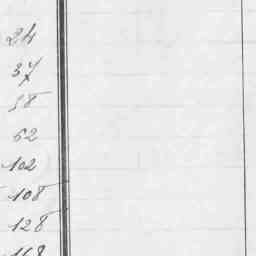 24
37
58
62
102
108
128
168